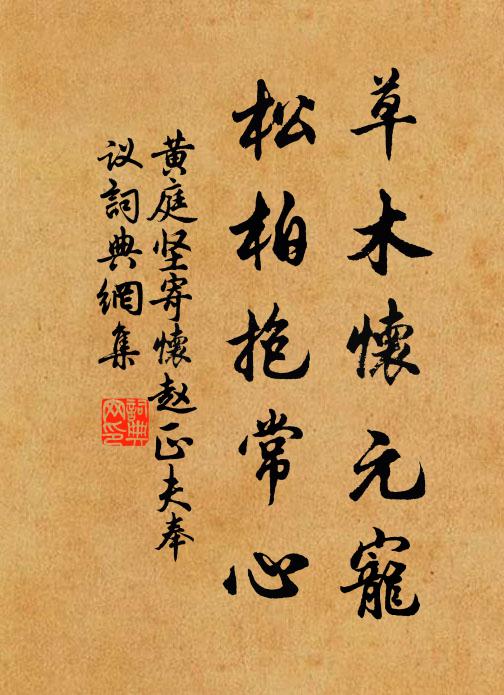 草木懷元寵
松柏抱常心
黄庭坚寄懷赵正夫奉
议詞典網集
詞典
网印